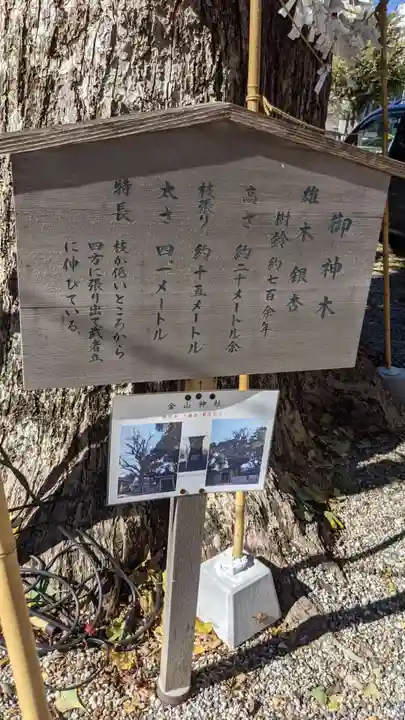 御神木
雄木 銀杏
樹齢 約七百余年
高さ 約二十メートル余
枝張り 約十五メートル
太さ 四.一メートル
特長 枝が低いところから
四方に張り出て武者立
に伸びている。
金山神社